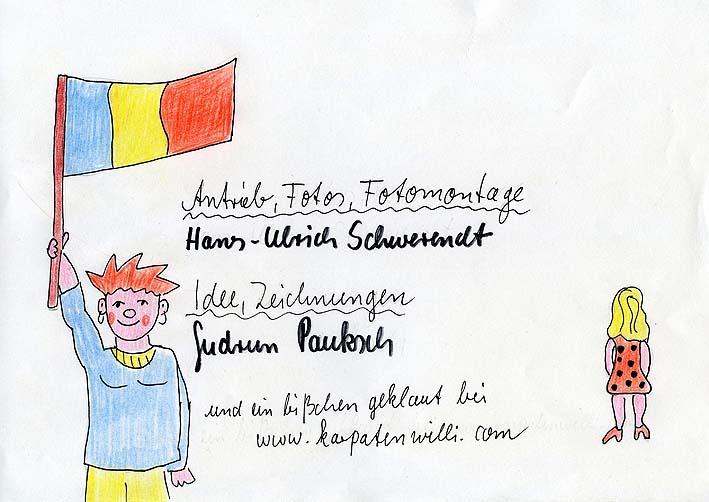 Antrieb, Fotos, Fotomontage
Hans-Ulrich Schwerendt
Idee, Zeichnungen
Gudrun Pauksch
und ein bißchen geklaut bei
www.karpatenwilli.com